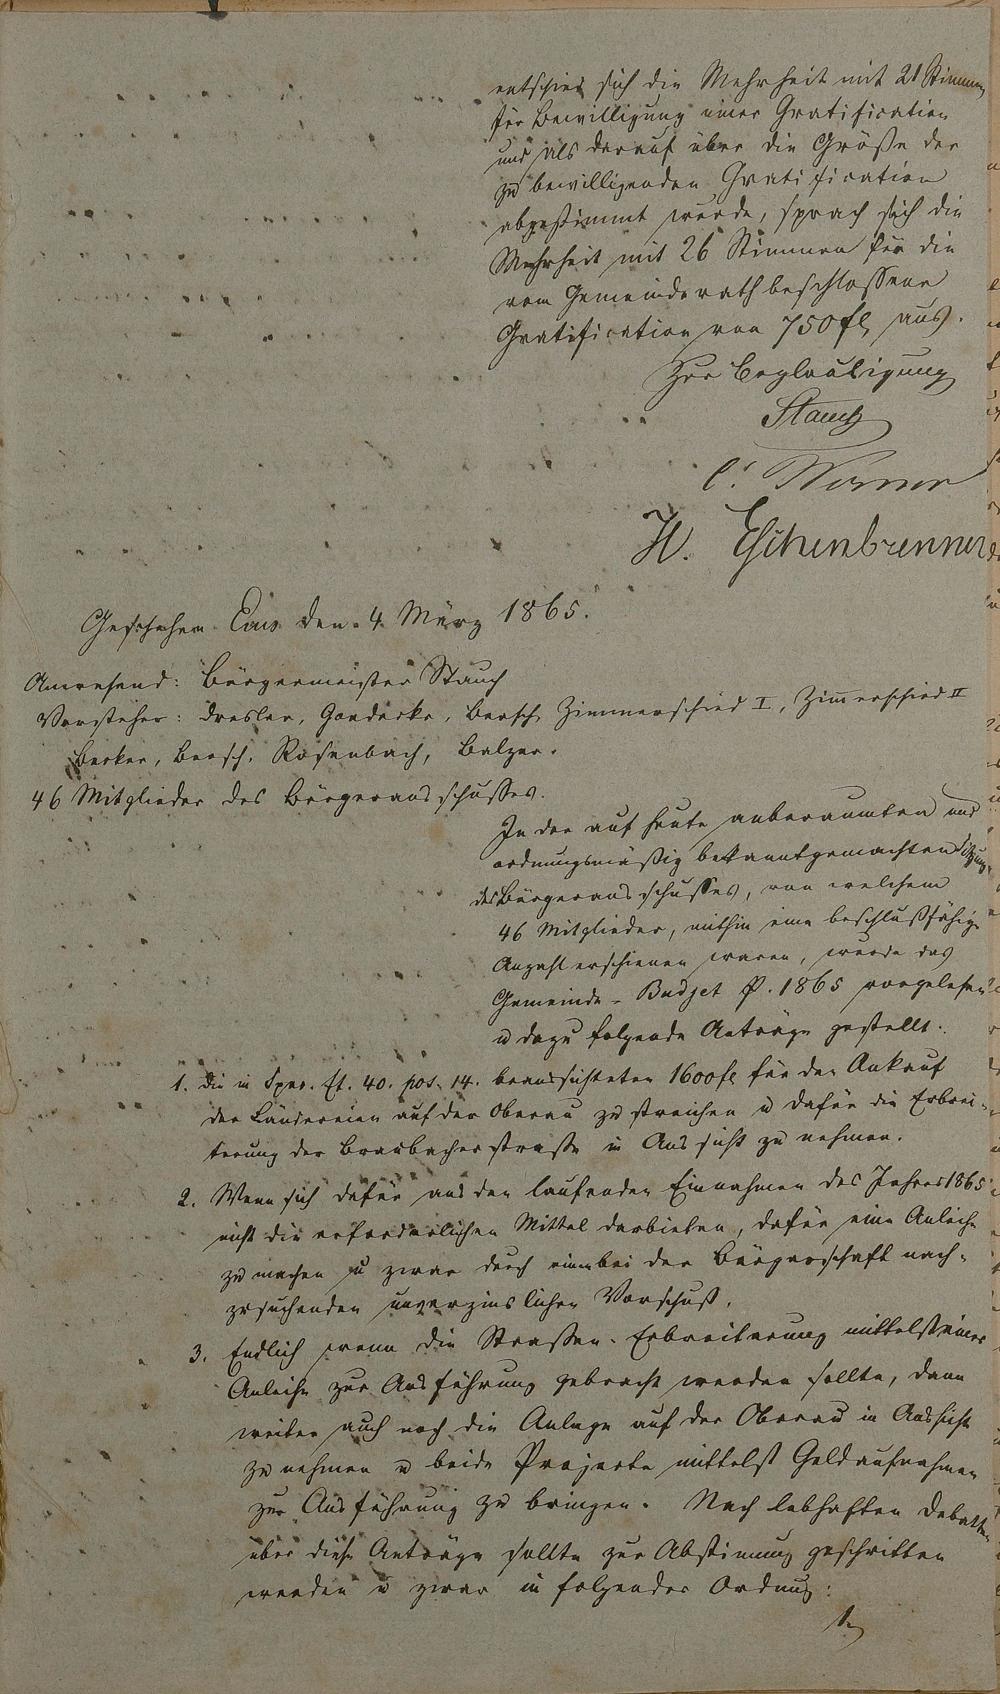 entschied sich die Mehrheit mit 21 Stimmen
für Bewilligung einer Gratification
und als darauf über die Größe der
zu bewilligenden Gratification
abgestimmt wurde, sprach sich die
Mehrheit mit 26 Stimmen für die
vom Gemeinderath beschlossene
Gratification von 750 fl aus.
Zur Beglaubigung
Stauch
C. Werner
H. Eschenbrenner
Geschehen Ems den 4 März 1865.
Anwesend: Bürgermeister Stauch
Vorsteher: Dresler, Goedecke, Bersch, Zimmerschied I, Zim̄erschied II
Becker, Bersch, Rosenbach, Balzer.
46 Mitglieder des Bürgerausschusses.
In der auf heute anberaumten und
ordnungsmäßig bekanntgemachten Sitzung
des Bürgerausschusses, von welchem
46 Mitglieder, mithin eine beschlußfähige
Anzahl erschienen waren, wurde das
Gemeinde-Budjet p. 1865 vorgelesen
u dazu folgende Anträge gestellt:
1. die in Tit. 40. pos. 14. beabsichteten 1600 fl für den Ankauf
der Ländereien auf der Oberau zu streichen u dafür die Erbrei-
terung der Braubacherstraße in Aussicht zu nehmen.
2. Wenn sich dafür aus den laufenden Einnahmen des Jahres 1865
nicht die erforderlichen Mittel darbieten, dafür eine Anleihe
zu machen u zwar durch einen bei der Bürgerschaft nach-
zusuchenden unverzinslichen Vorschuß.
3. Endlich wenn die Straßen-Erbreiterung mittelst einer
Anleihe zur Ausführung gebracht werden sollte, dann
weiter auch noch die Anlage auf der Oberau in Aussicht
zu nehmen u beide Projecte mittelst Geldaufnahmen
zur Ausführung zu bringen. Nach lebhaften Debatten
über diese Anträge sollte zur Abstimmung geschritten
werden u zwar in folgender Ordnung:
1,